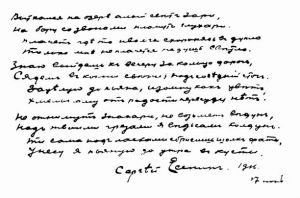 Выткался на озере алый свет зари,
На бору со звонами плачут глухари.
Плачет где то иволга схоронясь в дупло
Только мне не плачется на душе светло.
Знаю выйдешь к вечеру за кольцо дорог,
Сядем в копны свежие под соседний стог.
Зацелую до пьяна, изомну как цвет
Хмельному от радости пересуду нет.
Не отнимут знахари, не возьмет ведун,
Над твоими грезами я колдун.
Ты сама под ласками сбросишь шелк фаты,
Унесу я пьяную до утра в кусты.
Сергей Есенин.
17